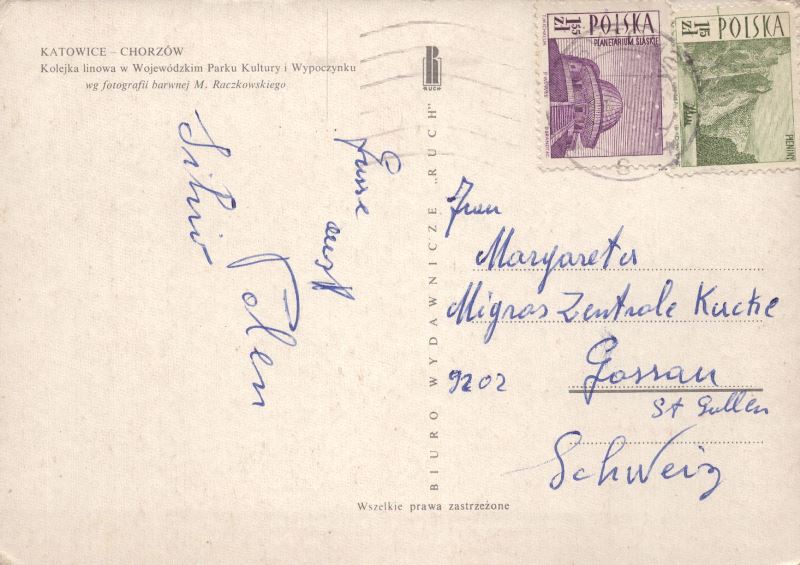 KATOWICE – CHORZÓW
Kolejka linowa w Wojewódzkim Parku Kultury i Wypoczynku
wg fotografii barwnej M. Raczkowskiego
RUCH
1.55 ZŁ POLSKA
PLANETARIUM ŚLĄSKIE
1.55 ZŁ POLSKA
PIENINY
Polen
Silvio
BIURO WYDAWNICZE „RUCH"
Frau
Margareta
Migros Zentrale
9202 Gossau
St Gallen
Schweiz
Wszelkie prawa zastrzeżone